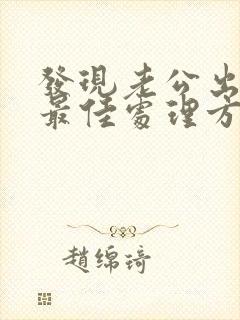 發現老公出
最佳處理方
趙綿琦